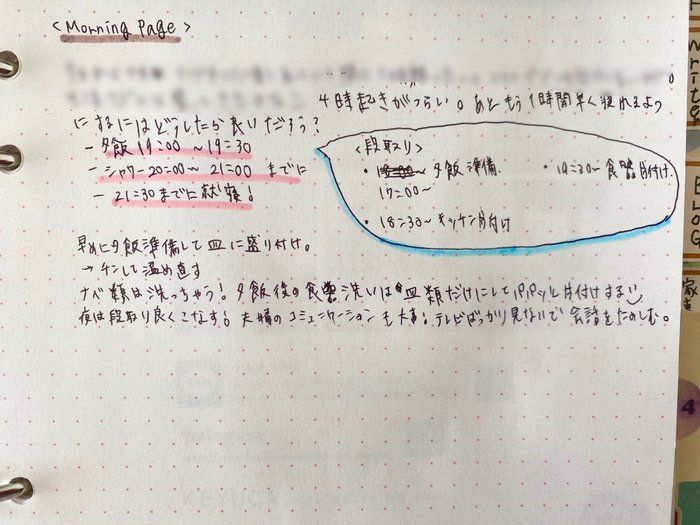 <Morning Page>
4時起きがつらい。あともう1時間早く寝れるよう
にするにはどうしたら良いだろう?
- 夕飯 19:00 ~ 19:30
- シャワー 20:00 ~ 21:00 までに
- 21:30までに就寝!
<段取り>
・ 夕飯準備
17:00~
・ 18:30~ キッチン片付け
・ 19:30~ 食器片付け
早めに夕飯準備して皿に盛り付け。
→チンして温め直す
ナベ類は洗っちゃう! 夕飯後の食器洗いは皿類だけにしてパパッと片付けする
夜は段取り良くこなす! 夫婦のコミュニケーションも大事! テレビばっかり見ないで会話をたのしむ。
Write
BLOG
家
4